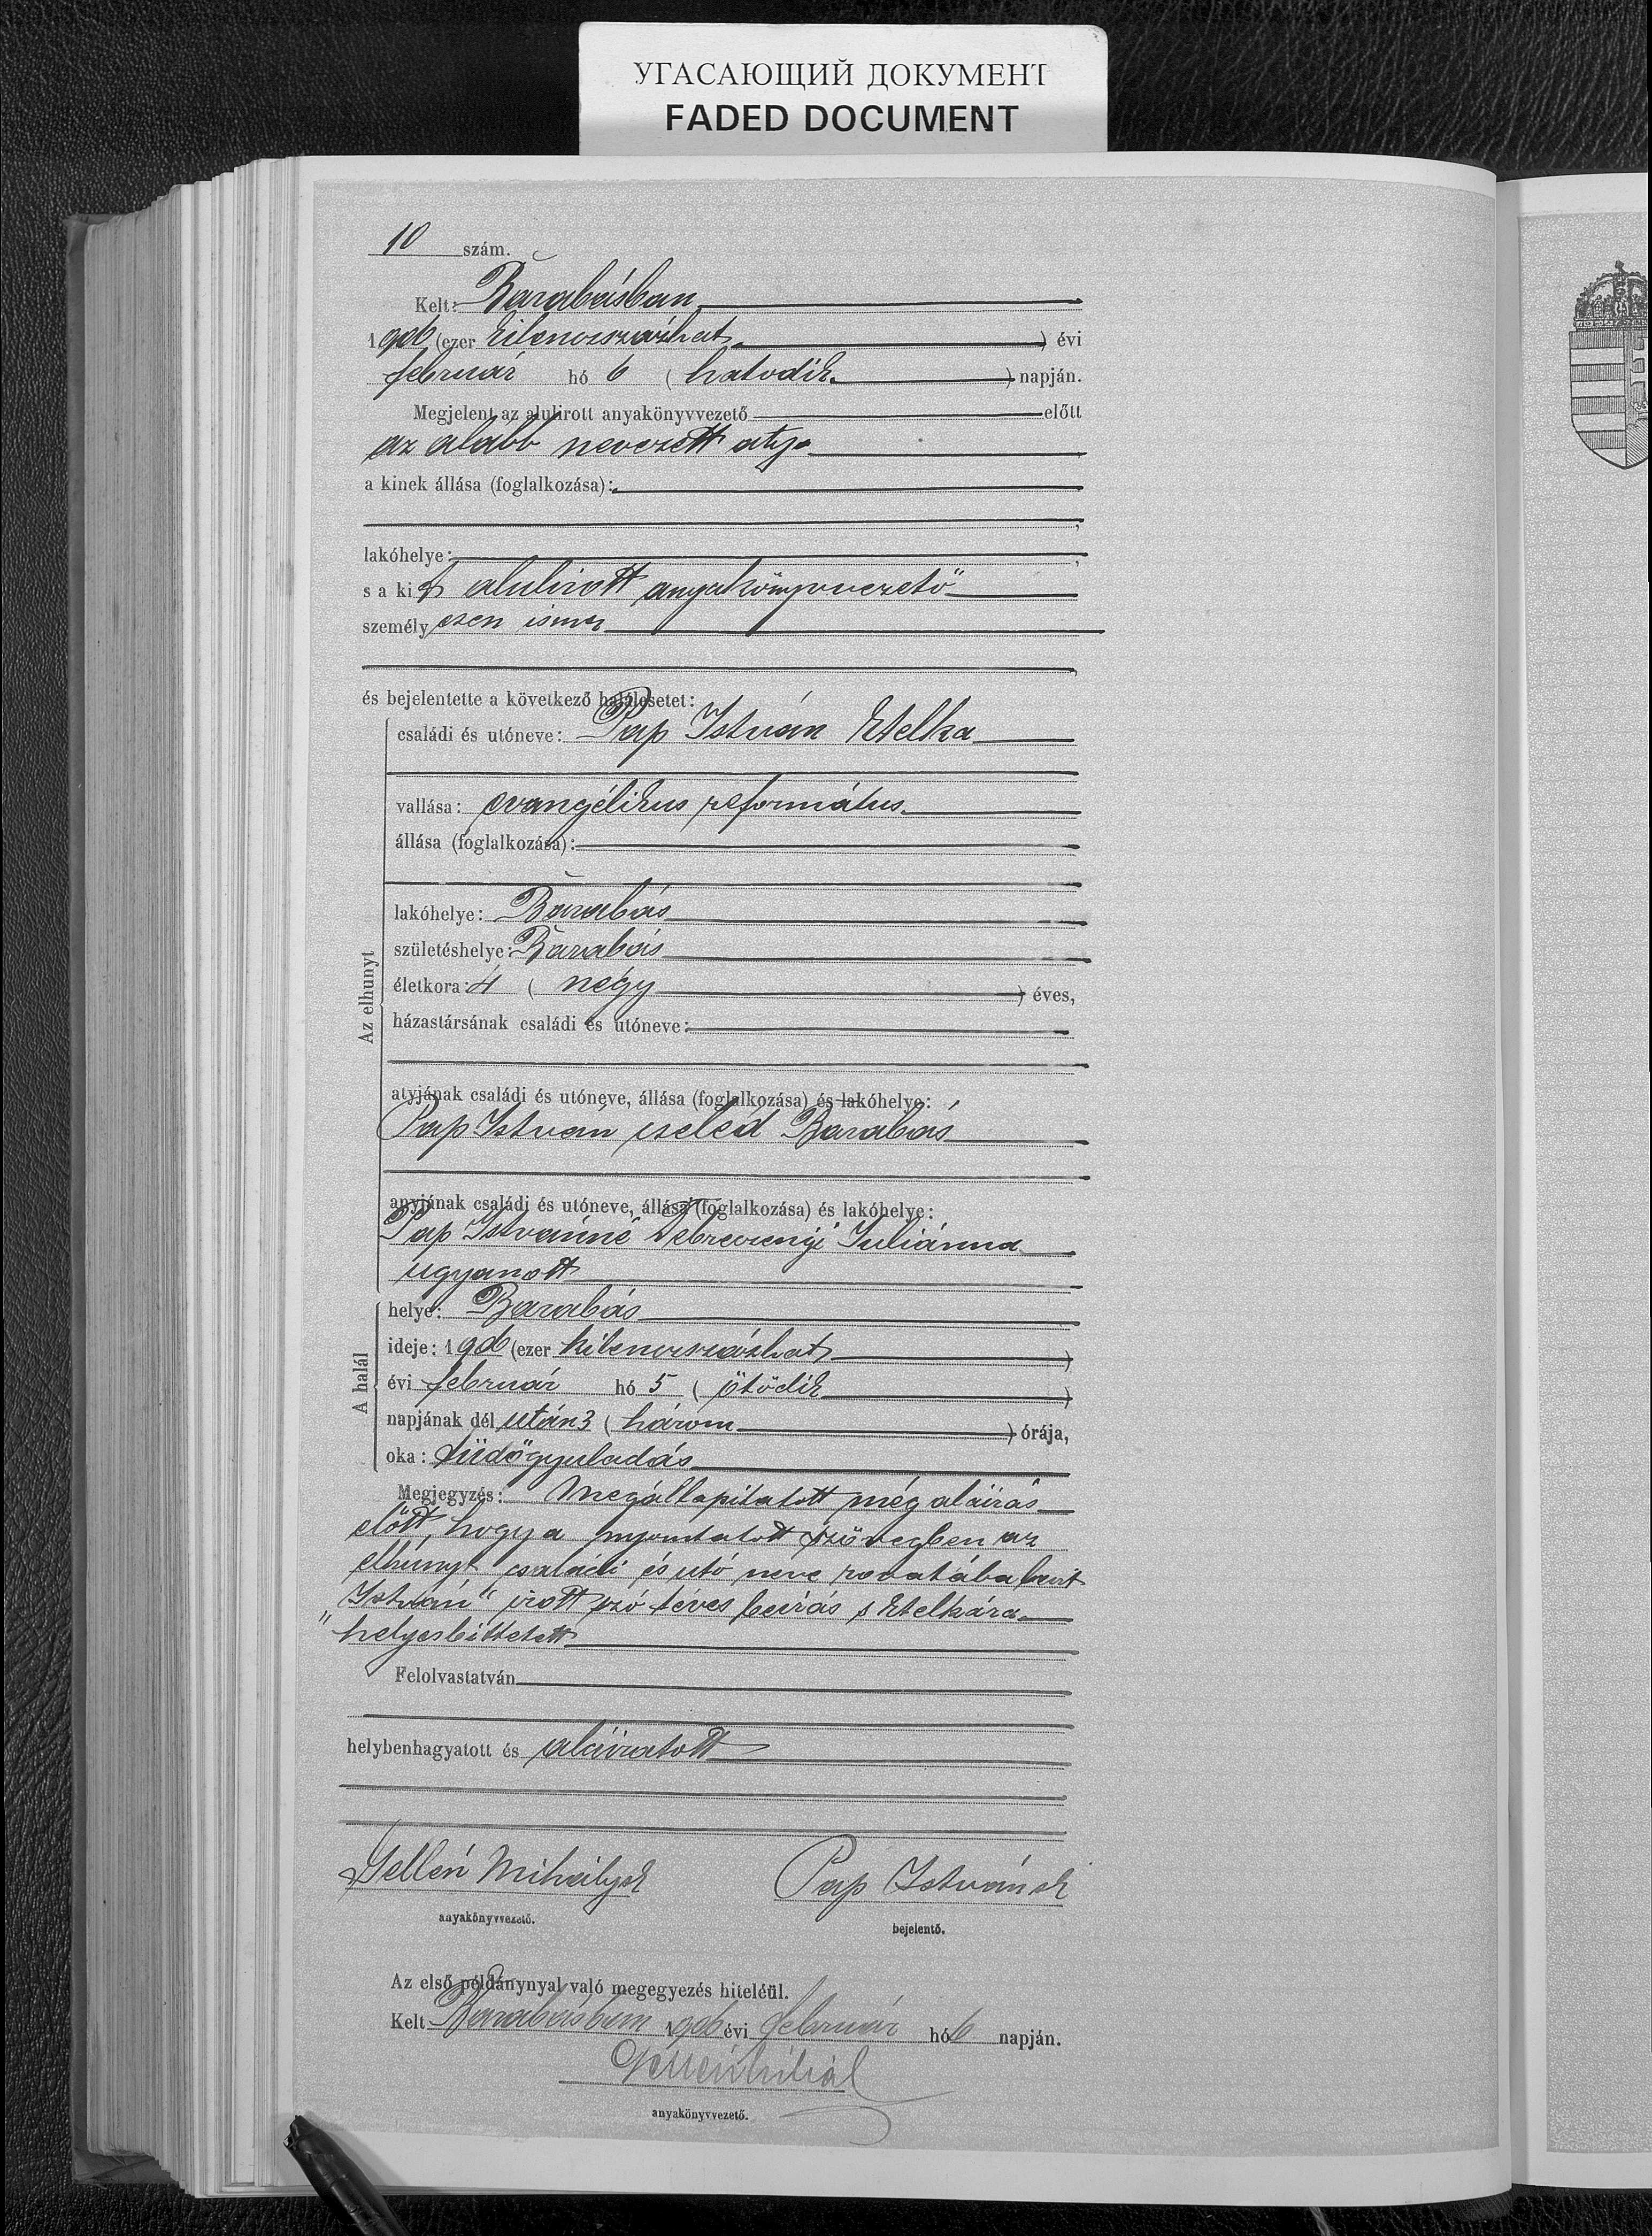 УГАСАЮЩИЙ ДОКУМЕНТ
FADED DOCUMENT
10 szám.
Kelt: Barabásban
1906 (ezer kilenczszázhat) évi
február hó 6 (hatodik) napján.
Megjelent az alulirott anyakönyvvezető előtt
az alább nevezett atya
a kinek állása (foglalkozása):
lakóhelye:
s a kit alulirott anyakönyvvezető
személyesen ismer
és bejelentette a következő halálesetet:
családi és utóneve: Pap István Etelka
vallása: evangélikus református
állása (foglalkozása):
lakóhelye: Barabás
születéshelye: Barabás
életkora: 4 (négy) éves,
házastársának családi és utóneve:
atyjának családi és utóneve, állása (foglalkozása) és lakóhelye:
Pap István cseléd Barabás
anyjának családi és utóneve, állása (foglalkozása) és lakóhelye:
Pap Istvánné Debreczenyi Juliánna
ugyanott
Az elhunyt
helye: Barabás
ideje: 1906 (ezer kilenczszázhat)
évi február hó 5 (ötödik)
napjának dél után 3 (három) órája,
oka: tüdőgyuladás
A halál
Megjegyzés: Megállapitatott még aláirás
előtt, hogy a nyomtatott szövegben az
elhúnyt családi és utó neve rovatába
"István" irott szó téves beirás s Etelkára
helyesbittetett
Felolvastatván
helybenhagyatott és aláiratott
Gellén Mihály sk Pap István sk
anyakönyvvezető. bejelentő.
Az első példánynyal való megegyezés hiteléül.
Kelt Barabásban 1906 évi február hó 6 napján.
Gellén Mihály
anyakönyvvezető.